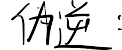 伪逆: